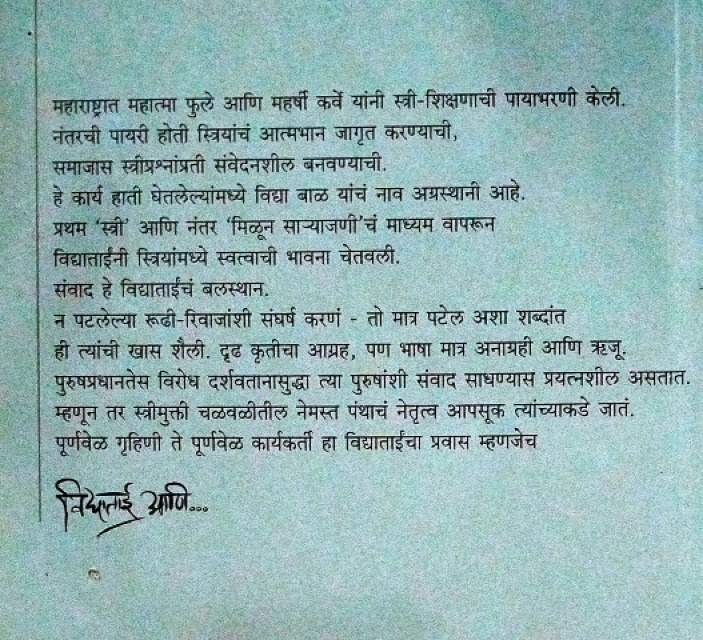 महाराष्ट्रात महात्मा फुले आणि महर्षी कर्वे यांनी स्त्री-शिक्षणाची पायाभरणी केली.
नंतरची पायरी होती स्त्रियांचं आत्मभान जागृत करण्याची,
समाजास स्त्रीप्रश्नांप्रती संवेदनशील बनवण्याची.
हे कार्य हाती घेतलेल्यांमध्ये विद्या बाळ यांचं नाव अग्रस्थानी आहे.
प्रथम ‘स्त्री’ आणि नंतर ‘मिळून साऱ्याजणी’चं माध्यम वापरून
विद्याताईंनी स्त्रियांमध्ये स्वत्वाची भावना चेतवली.
संवाद हे विद्याताईंचं बलस्थान.
न पटलेल्या रूढी-रिवाजांशी संघर्ष करणं - तो मात्र पटेल अशा शब्दांत
ही त्यांची खास शैली. दृढ कृतीचा आग्रह, पण भाषा मात्र अनाग्रही आणि ऋजू.
पुरुषप्रधानतेस विरोध दर्शवतानासुद्धा त्या पुरुषांशी संवाद साधण्यास प्रयत्नशील असतात.
म्हणून तर स्त्रीमुक्ती चळवळीतील नेमस्त पंथाचं नेतृत्व आपसूक त्यांच्याकडे जातं.
पूर्णवेळ गृहिणी ते पूर्णवेळ कार्यकर्ती हा विद्याताईंचा प्रवास म्हणजेच
विद्याताई आणि...